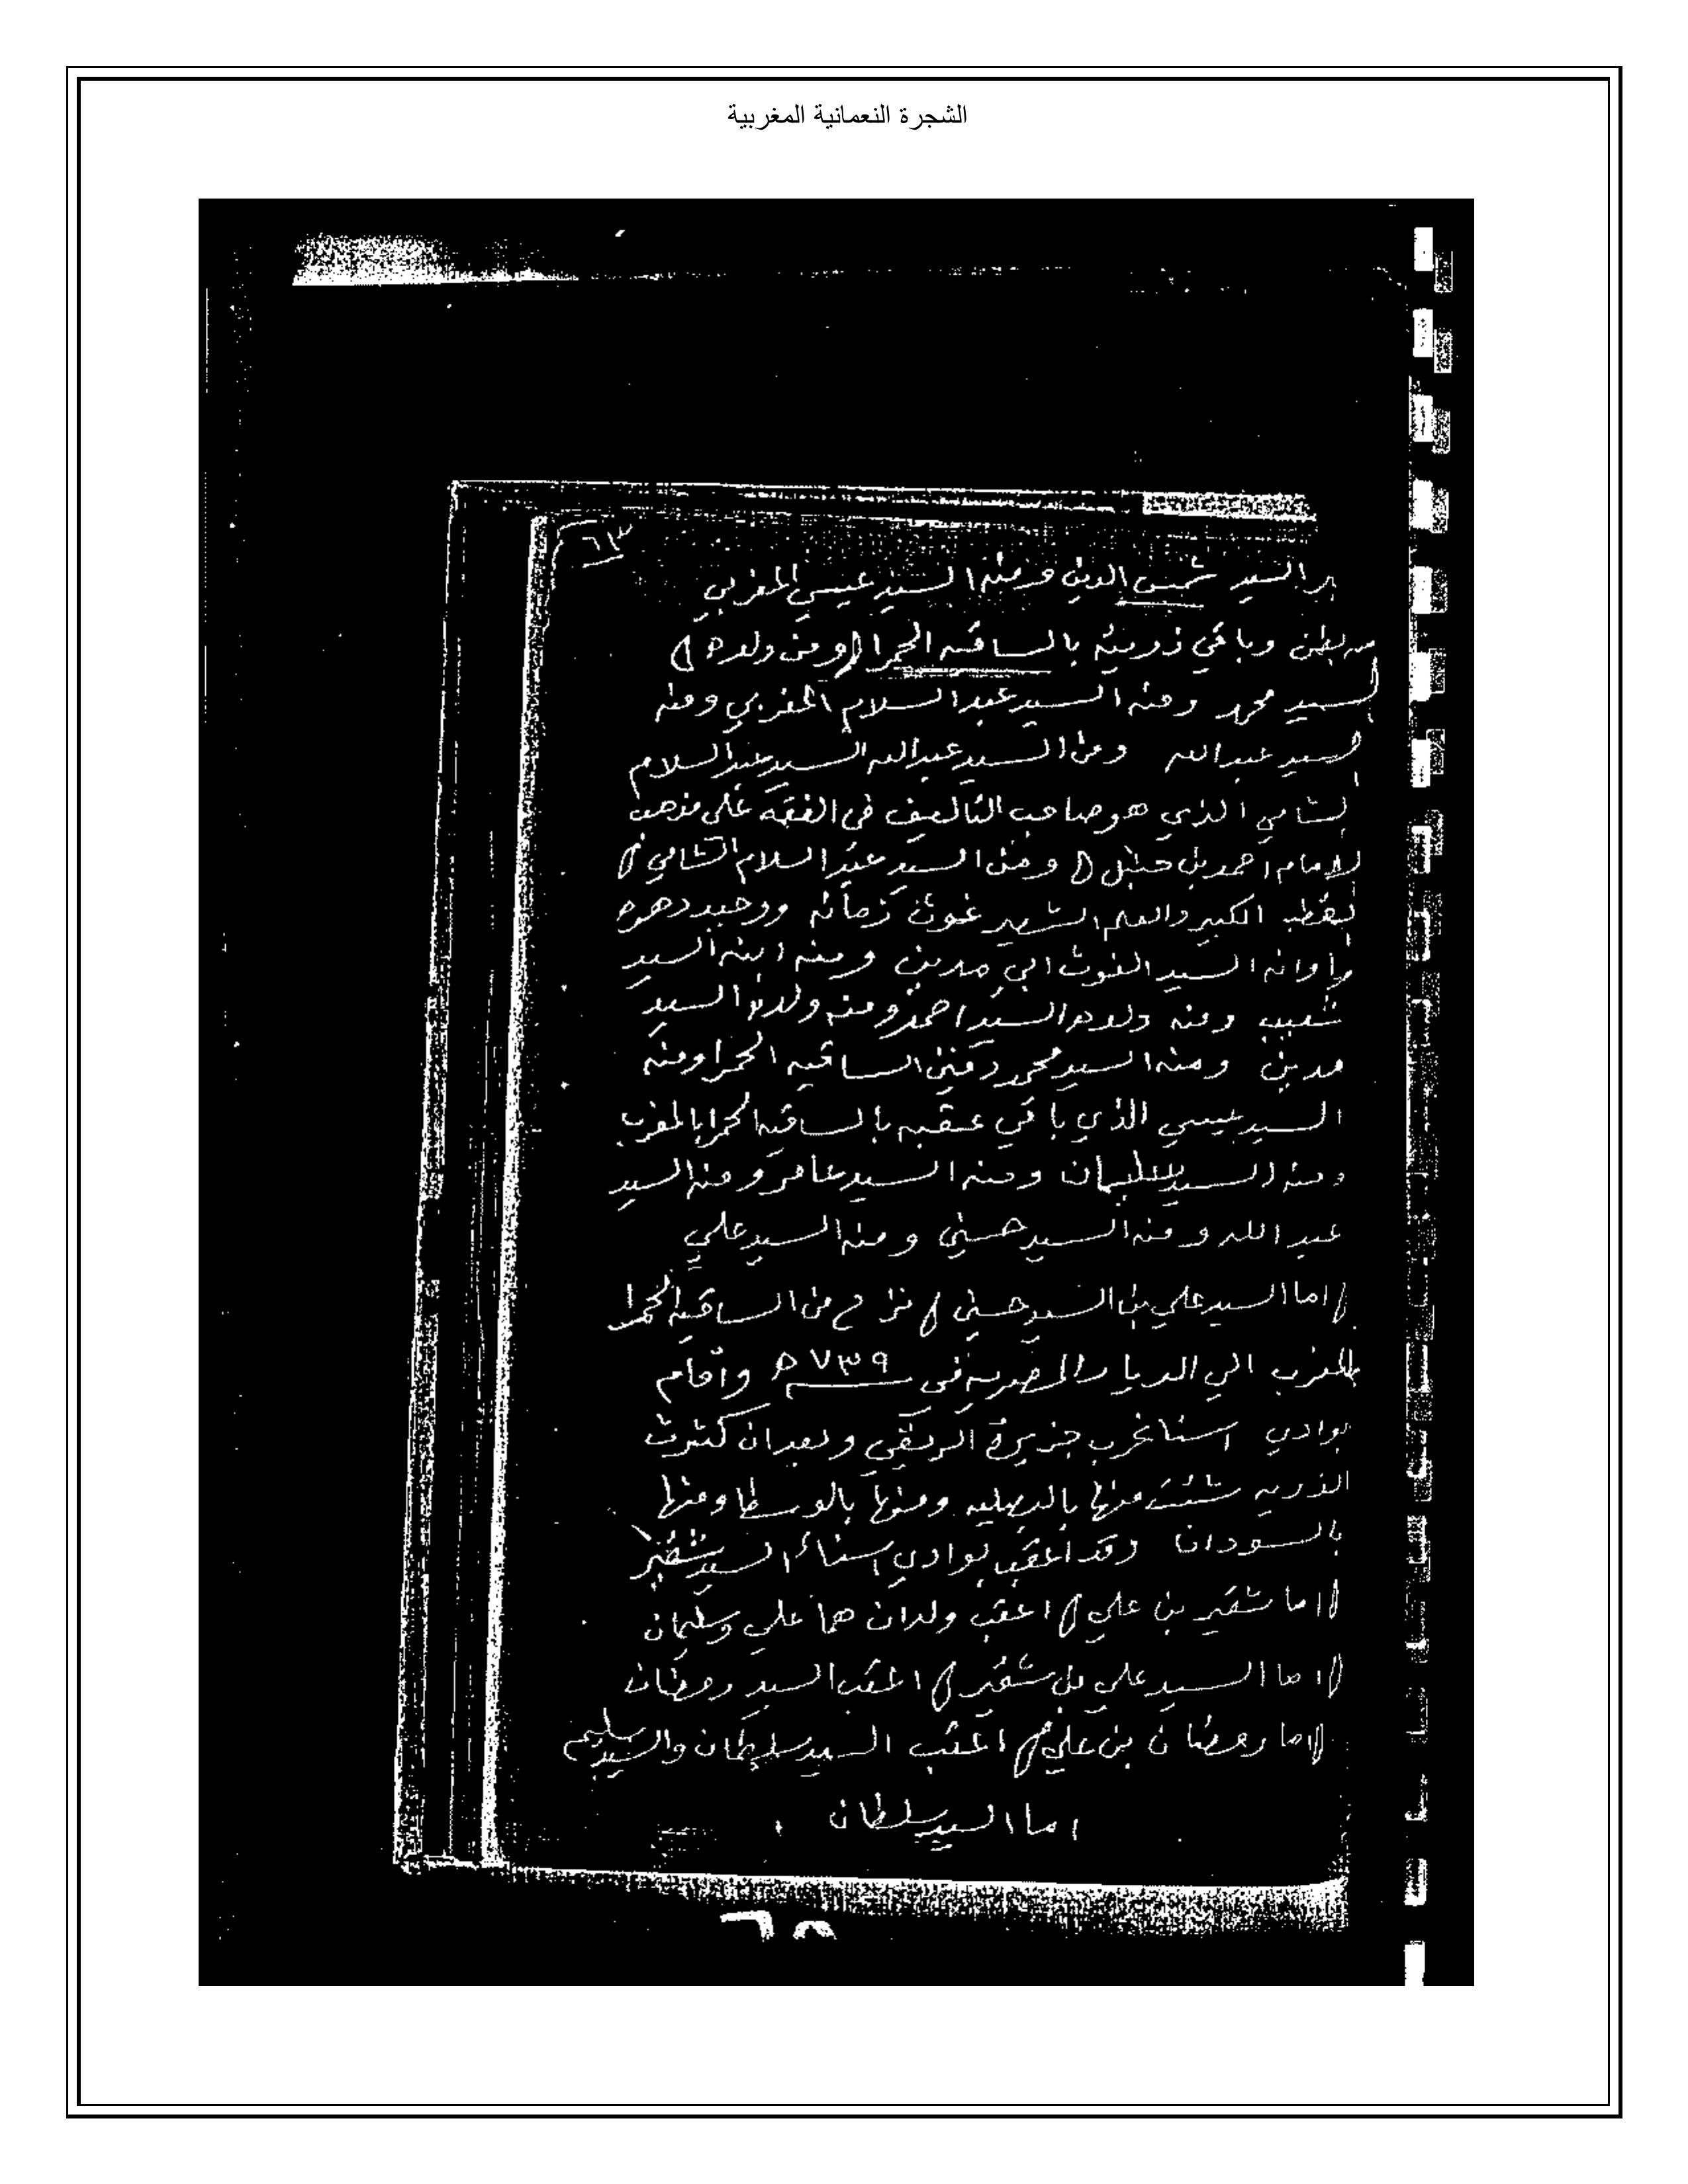 الشجرة النعمانية المغربية
٦٣
السيد شمس الدين ومنه السيد عيسي المغربي
وباقي ذريته بالساقيه الحمرا (ومن ولده)
السيد محمد ومنه السيد عبد السلام المغربي ومنه
السيد عبد الله ومن السيد عبد الله السيد عبد السلام
الشامي الذي هو صاحب التأليف في الفقه على مذهب
الامام احمد بن حنبل ( ومن السيد عبد السلام الشامي )
القطب الكبير والعلم الشهير غوث زمانه ووحيد دهره
وأوانه السيد الغوث ابي مدين ومنه ابنه السيد
شعيب ومنه ولده السيد احمد ومنه ولده السيد
مدين ومنه السيد محمد دفين الساقيه الحمرا ومنه
السيد عيسي الذي باقي عقبه بالساقيه الحمرا بالمغرب
ومنه السيد سليمان ومنه السيد عامر ومنه السيد
عبد الله ومنه السيد حسني ومنه السيد علي
( اما السيد علي بن السيد حسني ) نزح من الساقيه الحمرا
بالمغرب الي الديار المصريه في ٧٣٩ ه وأقام
بوادي اسنا غرب جزيرة وبعد ان كثرت
الذريه شتت منها ومنها بالوسطا ومنها
بالسودان وقد أعقب بوادي اسناء السيد شقير
( اما شقير بن علي ) اعقب ولدان هما علي وسليمان
( اما السيد علي بن شقير ) اعقب السيد رمضان
( اما رمضان بن علي ) اعقب السيد سلطان والسيد سليم
اما السيد سلطان
٦٥